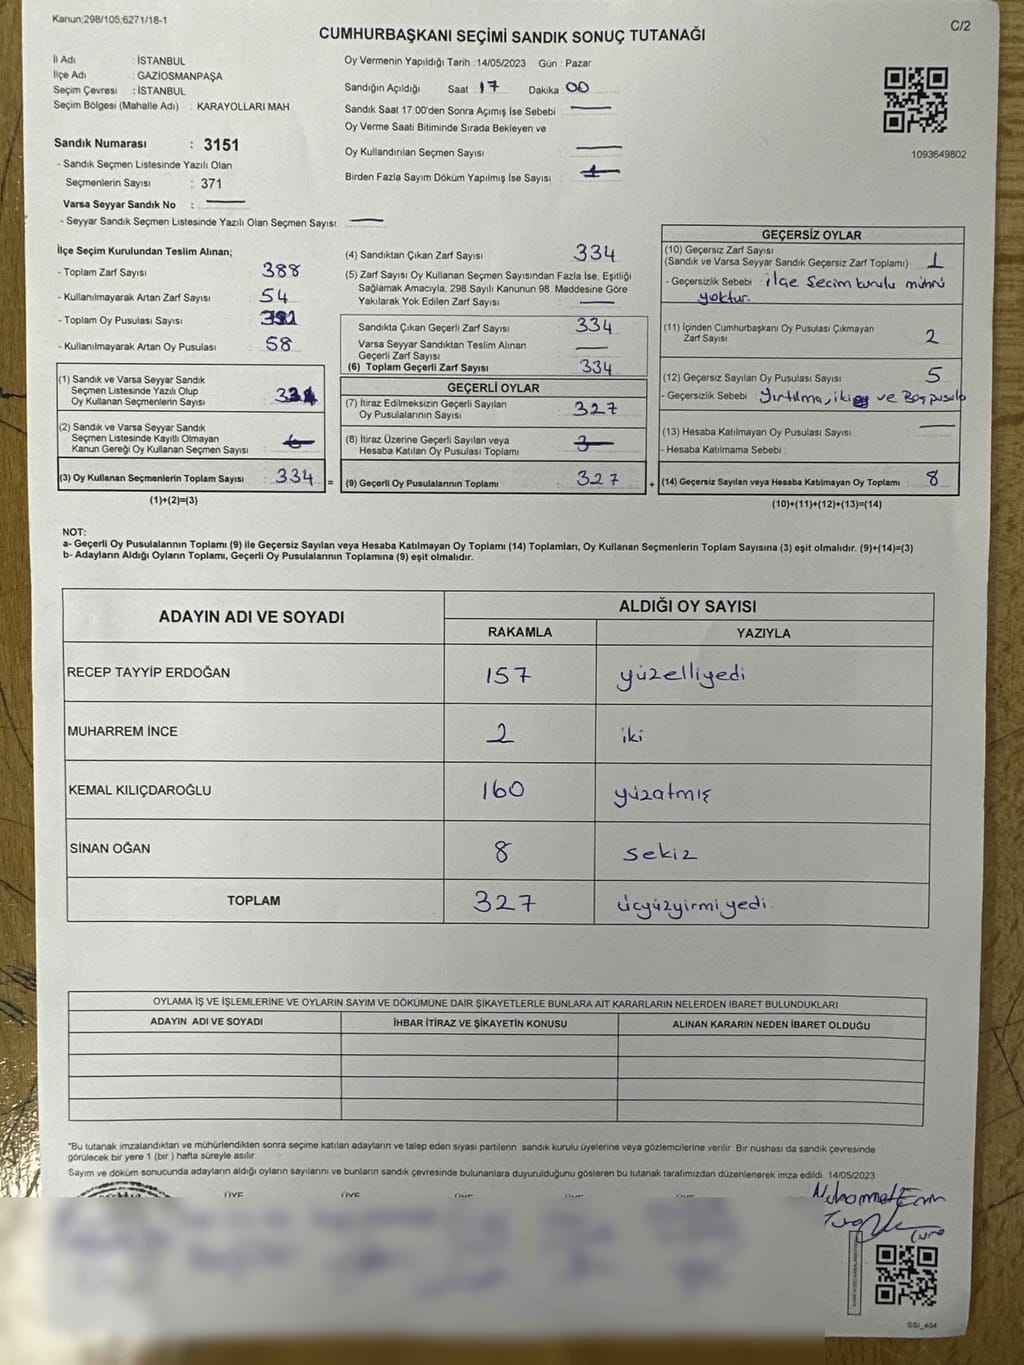 Kanun:298/105;6271/18-1
C/2
CUMHURBAŞKANI SEÇİMİ SANDIK SONUÇ TUTANAĞI
İl Adı : İSTANBUL
İlçe Adı : GAZİOSMANPAŞA
Seçim Çevresi : İSTANBUL
Seçim Bölgesi (Mahalle Adı) : KARAYOLLARI MAH
Sandık Numarası : 3151
- Sandık Seçmen Listesinde Yazılı Olan
Seçmenlerin Sayısı : 371
Varsa Seyyar Sandık No :
- Seyyar Sandık Seçmen Listesinde Yazılı Olan Seçmen Sayısı:
Oy Vermenin Yapıldığı Tarih : 14/05/2023 Gün : Pazar
Sandığın Açıldığı Saat : 17 Dakika : 00
Sandık Saat 17:00'den Sonra Açımış İse Sebebi :
Oy Verme Saati Bitiminde Sırada Bekleyen ve
Oy Kullandırılan Seçmen Sayısı :
Birden Fazla Sayım Döküm Yapılmış İse Sayısı :
1093649802
İlçe Seçim Kurulundan Teslim Alınan;
- Toplam Zarf Sayısı : 388
- Kullanılmayarak Artan Zarf Sayısı : 54
- Toplam Oy Pusulası Sayısı :
- Kullanılmayarak Artan Oy Pusulası : 58
(1) Sandık ve Varsa Seyyar Sandık
Seçmen Listesinde Yazılı Olup
Oy Kullanan Seçmenlerin Sayısı :
(2) Sandık ve Varsa Seyyar Sandık
Seçmen Listesinde Kayıtlı Olmayan
Kanun Gereği Oy Kullanan Seçmen Sayısı :
(3) Oy Kullanan Seçmenlerin Toplam Sayısı : 334 =
(1)+(2)=(3)
(4) Sandıktan Çıkan Zarf Sayısı : 334
(5) Zarf Sayısı Oy Kullanan Seçmen Sayısından Fazla İse, Eşitliği
Sağlamak Amacıyla, 298 Sayılı Kanunun 98. Maddesine Göre
Yakılarak Yok Edilen Zarf Sayısı :
Sandıkta Çıkan Geçerli Zarf Sayısı : 334
Varsa Seyyar Sandıktan Teslim Alınan
Geçerli Zarf Sayısı :
(6) Toplam Geçerli Zarf Sayısı : 334
GEÇERLİ OYLAR
(7) İtiraz Edilmeksizin Geçerli Sayılan
Oy Pusulalarının Sayısı : 327
(8) İtiraz Üzerine Geçerli Sayılan veya
Hesaba Katılan Oy Pusulası Toplamı :
(9) Geçerli Oy Pusulalarının Toplamı : 327 +
GEÇERSİZ OYLAR
(10) Geçersiz Zarf Sayısı
(Sandık ve Varsa Seyyar Sandık Geçersiz Zarf Toplamı) : 1
- Geçersizlik Sebebi : ilçe Secim kurulu mührü
yoktur.
(11) İçinden Cumhurbaşkanı Oy Pusulası Çıkmayan
Zarf Sayısı : 2
(12) Geçersiz Sayılan Oy Pusulası Sayısı : 5
- Geçersizlik Sebebi : Yırtılma, iki ve Boş pusula
(13) Hesaba Katılmayan Oy Pusulası Sayısı :
- Hesaba Katılmama Sebebi :
(14) Geçersiz Sayılan veya Hesaba Katılmayan Oy Toplamı : 8
(10)+(11)+(12)+(13)=(14)
NOT:
a- Geçerli Oy Pusulalarının Toplamı (9) ile Geçersiz Sayılan veya Hesaba Katılmayan Oy Toplamı (14) Toplamları, Oy Kullanan Seçmenlerin Toplam Sayısına (3) eşit olmalıdır. (9)+(14)=(3)
b- Adayların Aldığı Oyların Toplamı, Geçerli Oy Pusulalarının Toplamına (9) eşit olmalıdır.
ADAYIN ADI VE SOYADI
ALDIĞI OY SAYISI
RAKAMLA YAZIYLA
RECEP TAYYİP ERDOĞAN 157 yüzelliyedi
MUHARREM İNCE 2 iki
KEMAL KILIÇDAROĞLU 160 yüzatmış
SİNAN OĞAN 8 sekiz
TOPLAM 327 üçyüzyirmiyedi.
OYLAMA İŞ VE İŞLEMLERİNE VE OYLARIN SAYIM VE DÖKÜMÜNE DAİR ŞİKAYETLERLE BUNLARA AİT KARARLARIN NELERDEN İBARET BULUNDUKLARI
ADAYIN ADI VE SOYADI İHBAR İTİRAZ VE ŞİKAYETİN KONUSU ALINAN KARARIN NEDEN İBARET OLDUĞU
*Bu tutanak imzalandıktan ve mühürlendikten sonra seçime katılan adayların ve talep eden siyasi partilerin sandık kurulu üyelerine veya gözlemcilerine verilir. Bir nüshası da sandık çevresinde
görülecek bir yere 1 (bir ) hafta süreyle asılır.
Sayım ve döküm sonucunda adayların aldığı oyların sayılarını ve bunların sandık çevresinde bulunanlara duyurulduğunu gösteren bu tutanak tarafımızdan düzenlenerek imza edildi. 14/05/2023
ÜYE ÜYE ÜYE ÜYE ÜYE
SSI_404